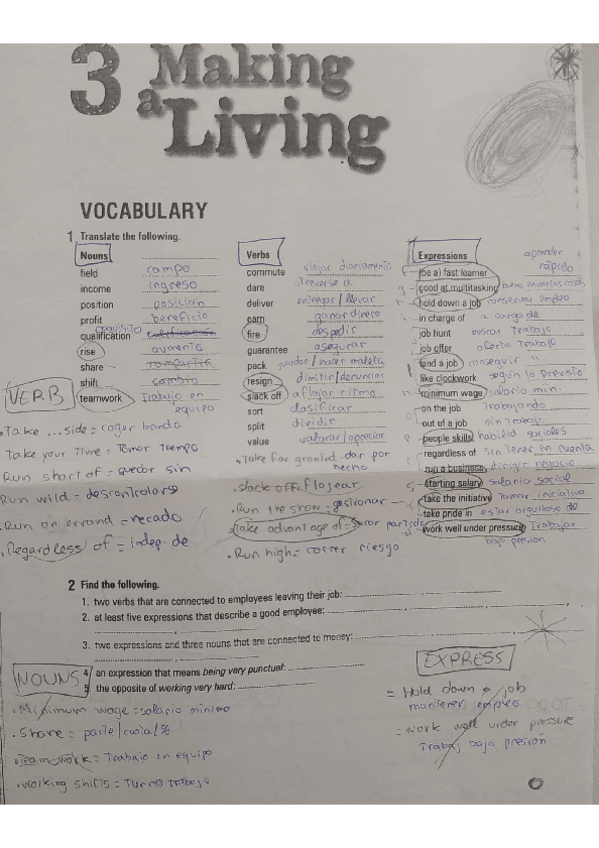 3 Making
a Living
VOCABULARY
1 Translate the following.
Nouns
field campo
income ingreso
position posición
profit beneficio
qualification
rise aumento
share compartir
shift cambio
teamwork Trabajo en
equipo
Verbs
commute viajar diariamente
dare atreverse a
deliver entregar / llevar
earn ganar dinero
fire despedir
guarantee asegurar
pack
resign dimitir/denunciar
slack off aflojar ritmo
sort clasificar
split dividir
value valorar/apreciar
Expressions
aprender
(be a) fast learner rápido
good at multitasking
hold down a job conservar empleo
in charge of a cargo de
job hunt buscar trabajo
job offer oferta trabajo
land a job conseguir "
like clockwork según lo previsto
minimum wage salario min.
on the job trabajando
out of a job sin trabajo
people skills habilid sociales
regardless of sin tener en cuenta
run a business dirigir negocio
starting salary salario
take the initiative Tomar iniciativa
take pride in estar orgulloso de
work well under pressure Trabajar
bajo presion
VERB
. Take ...side = coger bando
Take your time = Tomar tiempo
Run short of = quedar sin
Run wild = descontrolarse
. Run an errand = recado
. Regardless of = indep. de
. Take for granted - dar por
hecho
. slack off = flojear
. Run the show = gestionar
Take advantage of = sacar partido
. Run high = correr riesgo
2 Find the following.
1. two verbs that are connected to employees leaving their job:
2. at least five expressions that describe a good employee:
3. two expressions and three nouns that are connected to money:
4. an expression that means being very punctual:
5. the opposite of working very hard:
NOUNS
. Minimum wage = salario minimo
. Share = parte/cuota/%
. Teamwork = Trabajo en equipo
. Working shifts = Turno Trabajo
EXPRESS
= Hold down a job
mantener empleo
= work well under pressure
Trabaj bajo presión